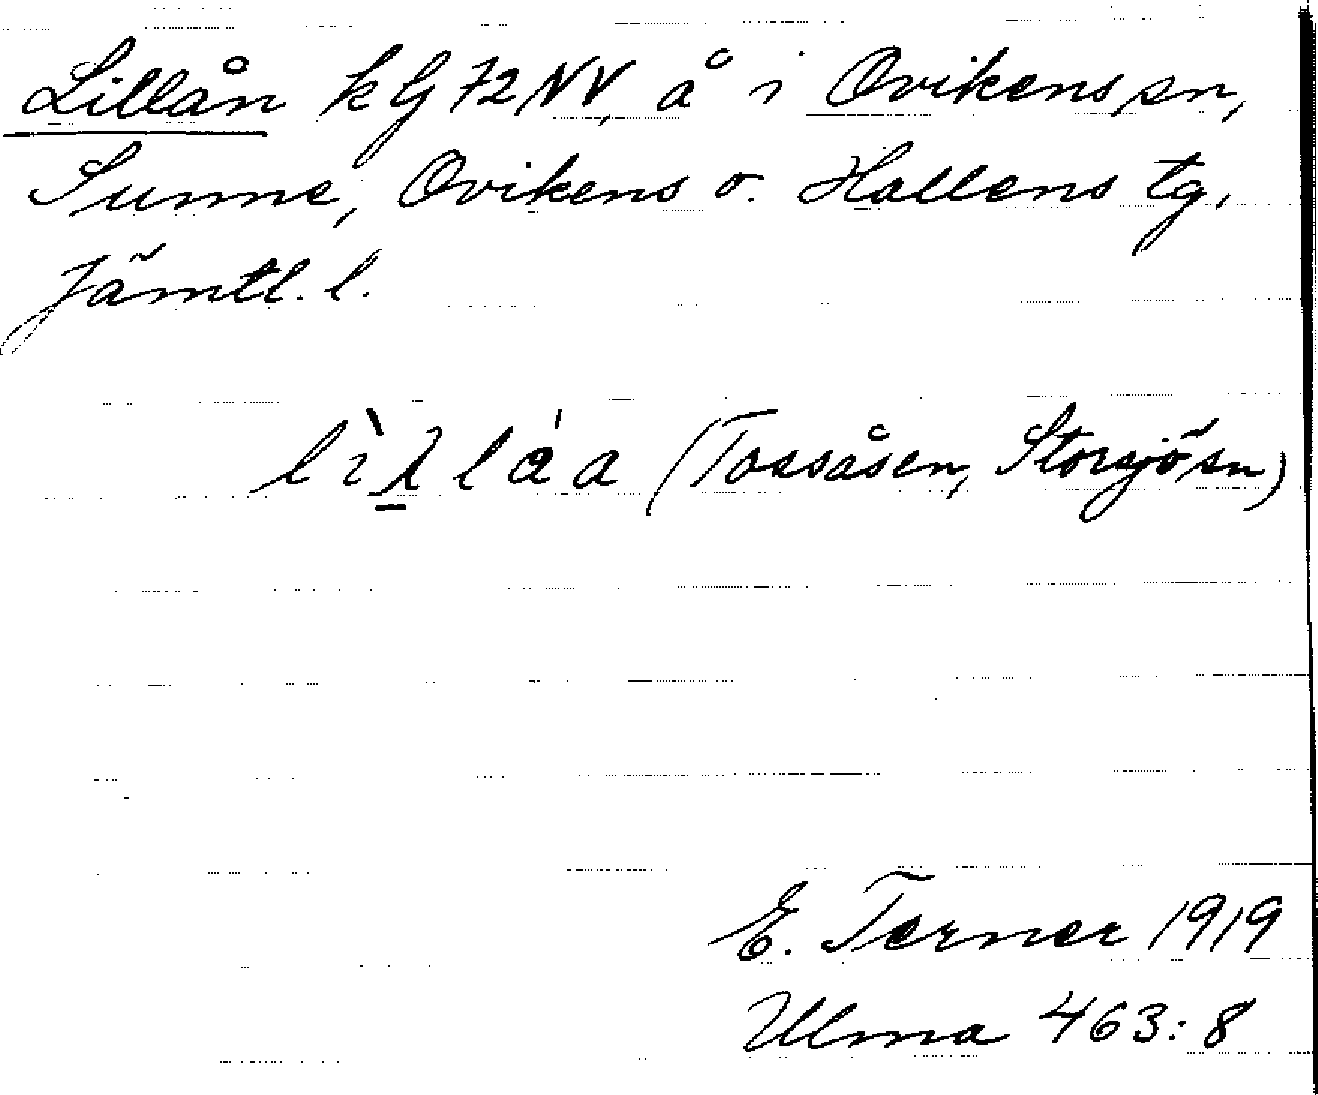 Lillån kG 72 NV, å i Ovikens sn,
Sunne, Ovikens o. Hallens tg,
Jämtl. l.
(Tossåsen, Storsjö sn)
E. Terner 1919
Ulma 463:8